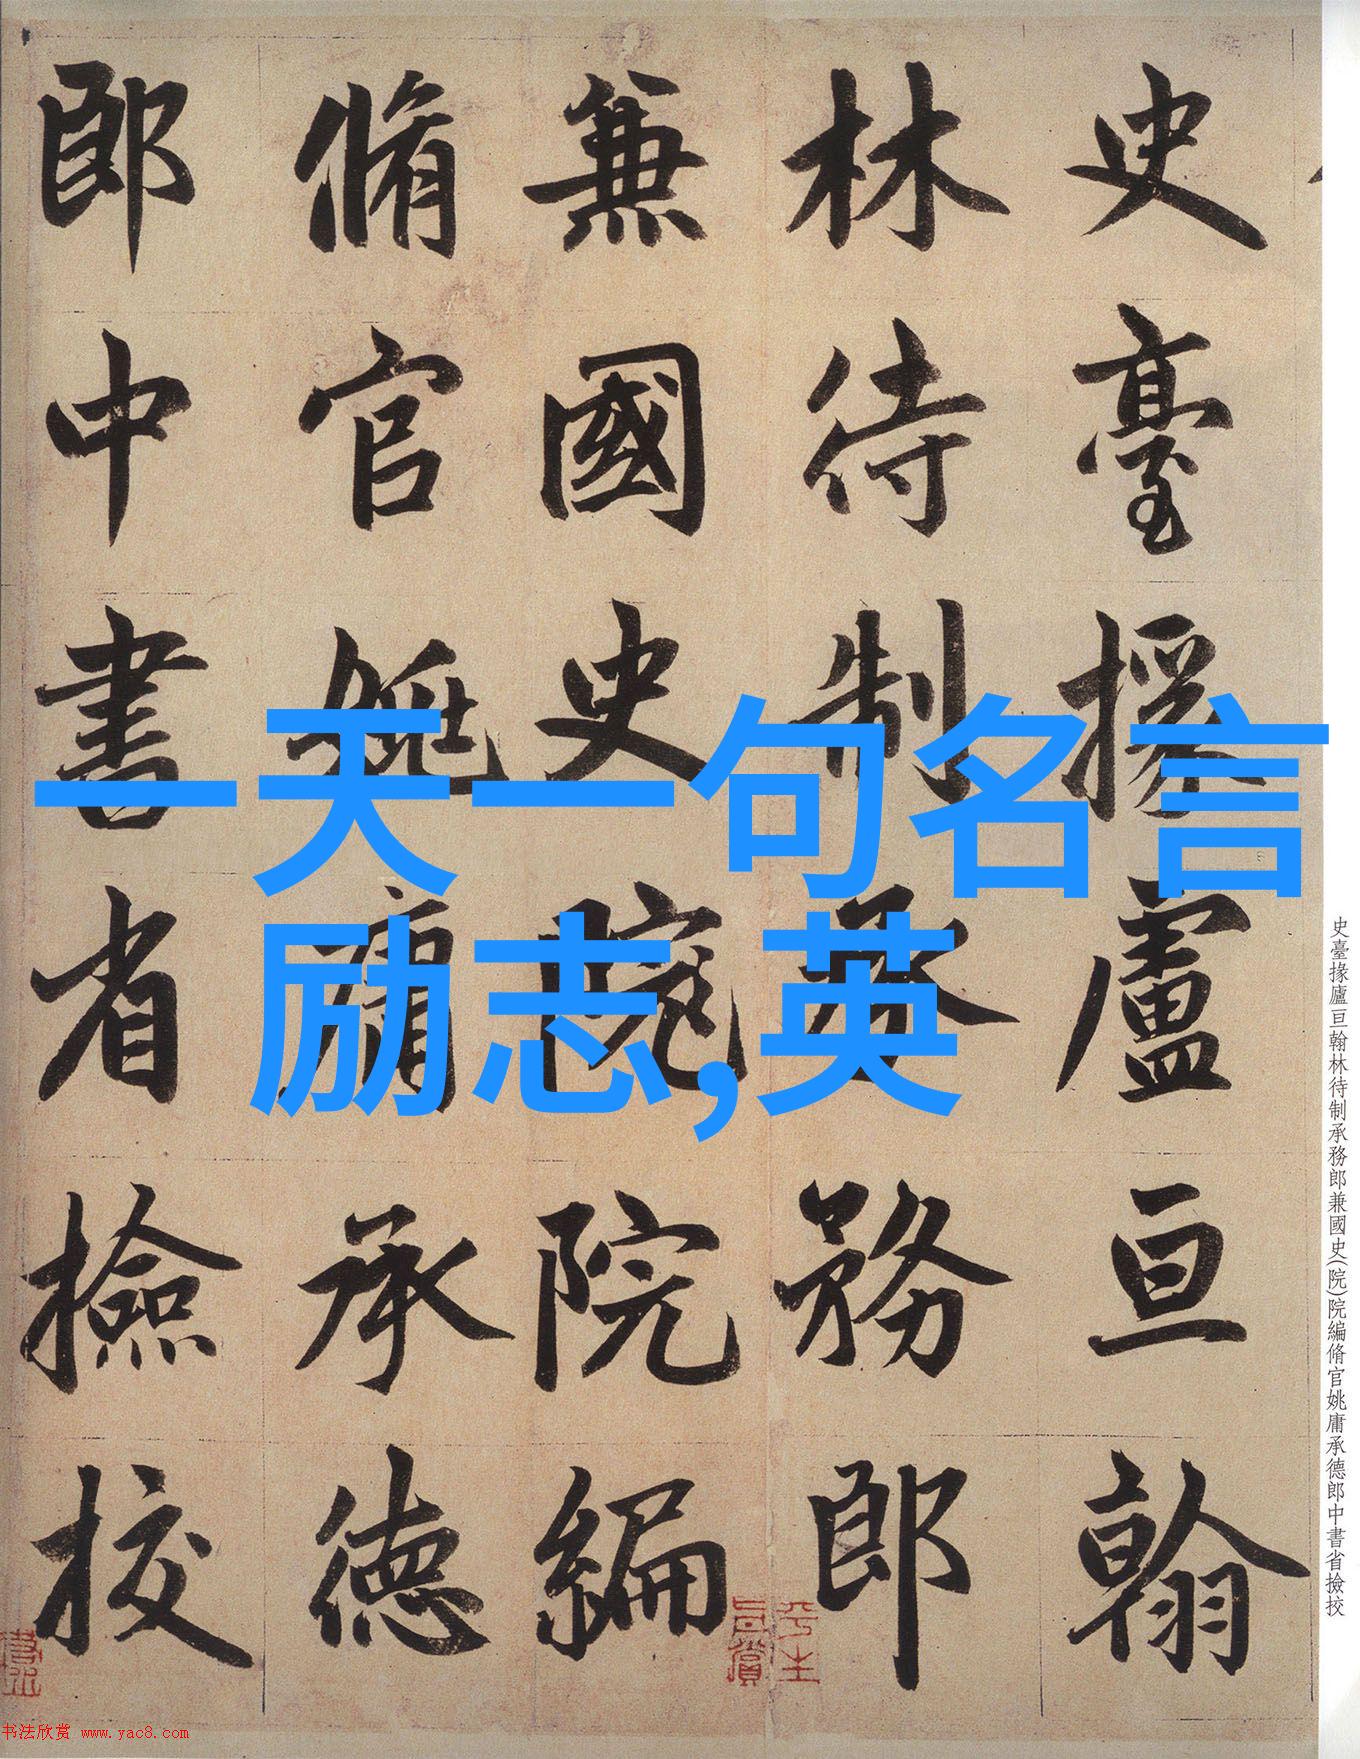 史臺掾廬亘翰
林待制承務郎
兼國史院院編
脩官姚庸承德
郎中書省撿挍
一天一句名言
励志,英
史臺掾廬亘翰林待制承務郎兼國史(院)院編脩官姚庸承德郎中書省撿挍
平生
书法欣赏 www.yac8.com